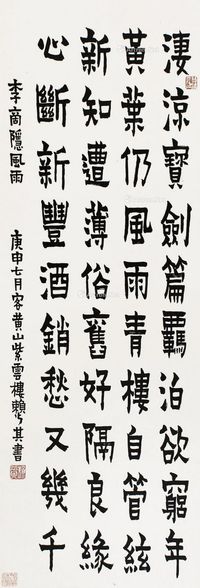 淒涼寶劍篇羈泊欲窮年
黃葉仍風雨青樓自管絃
新知遭薄俗舊好隔良緣
心斷新豐酒銷愁又幾千
李商隱風雨 庚申七月客黃山紫雲樓賴少其書